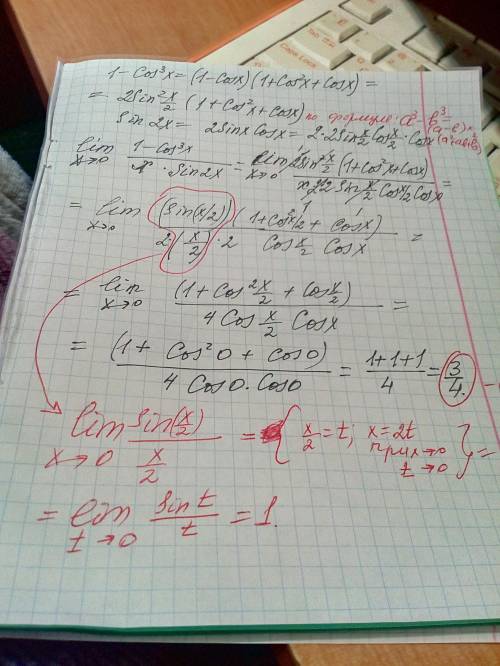 1-cos³x = (1-cosx)(1+cos²x+cosx) =
= 2sin²x/2 (1+cos²x+cosx) по формуле: a³-b³=(a-b)×(a²+ab+b²)
sin2x = 2sinx cosx = 2·2sin x/2 cos x/2 · cosx
lim x→0 (1-cos³x)/(x·sin2x) = lim x→0 2sin²x/2 (1+cos²x+cosx)/(x·2·2 sin x/2 cos x/2 cosx) =
= lim x→0 (sin(x/2))(1+cos²x/2+cosx)/(2(x/2)·2 cos x/2 cosx) =
= lim x→0 (1+cos²x/2+cos x/2)/(4cos x/2 cosx) =
= (1+cos²0+cos0)/(4cos0·cos0) = (1+1+1)/4 = 3/4.
lim x→0 sin(x/2)/(x/2) = { x/2=t; x=2t при x→0 t→0 } =
= lim t→0 sint/t = 1.